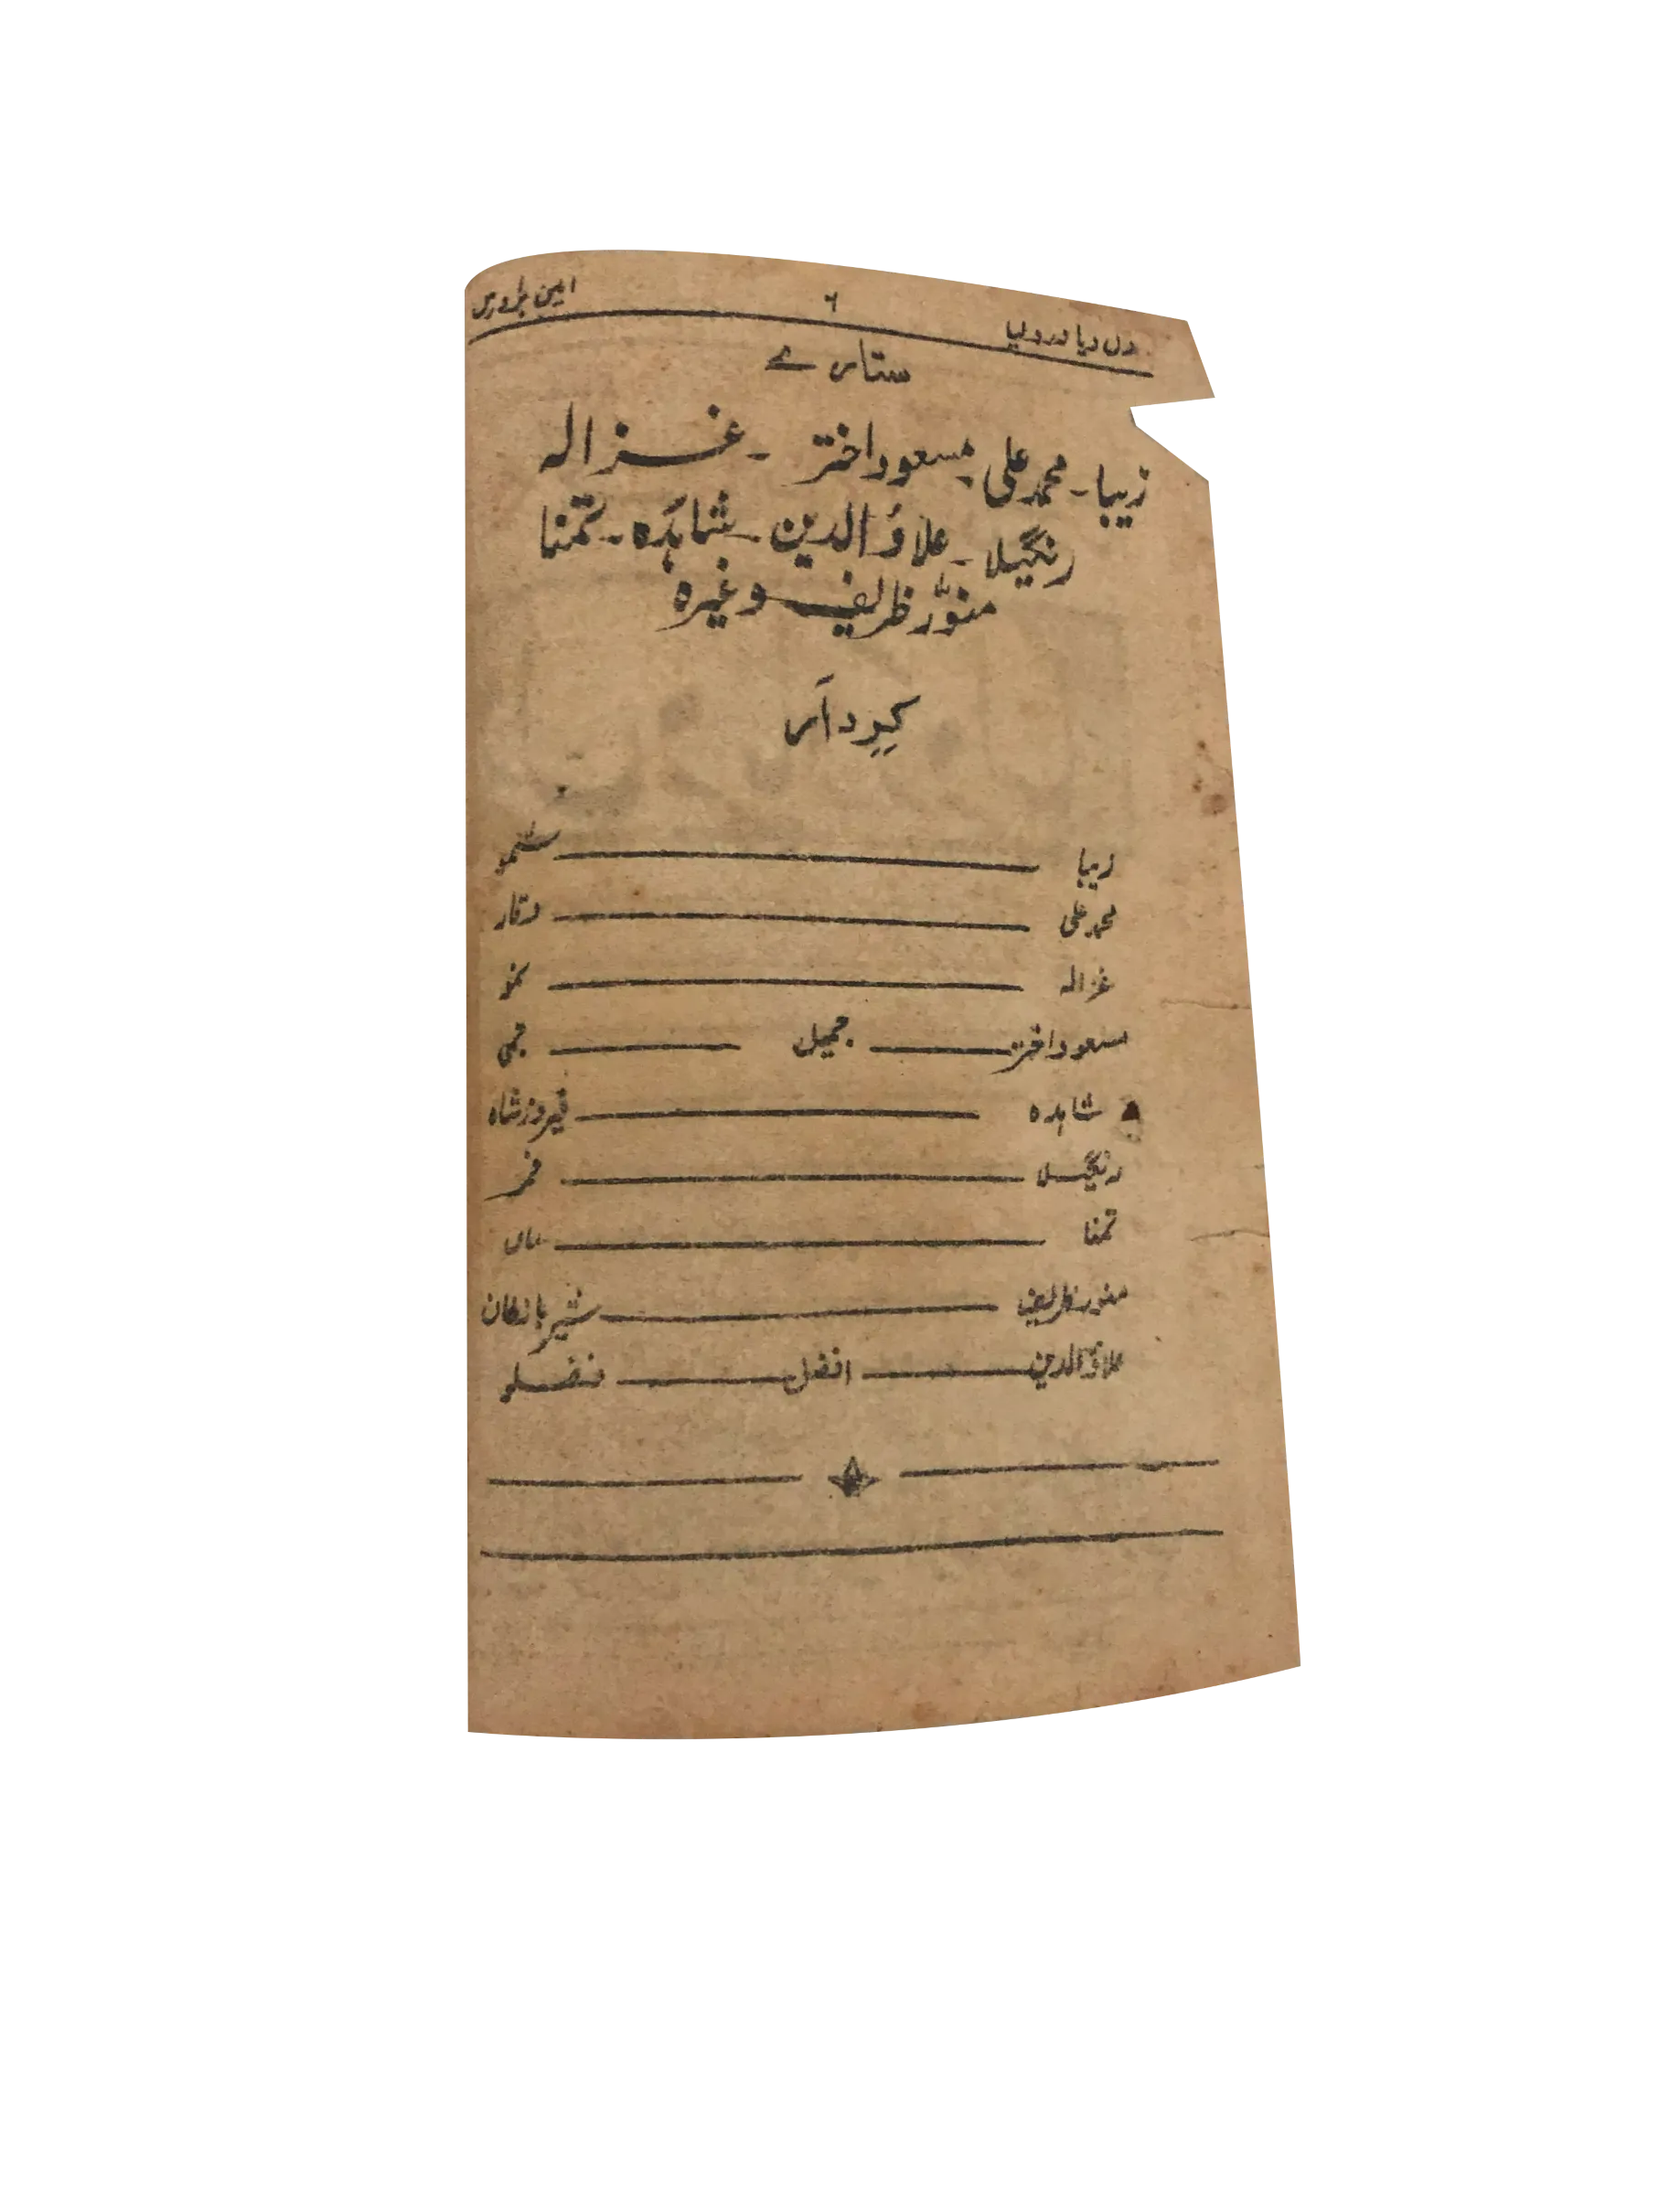 دل دیا درد لیا ۶ امین برادرس
ستارے
زیبا۔ محمد علی۔ مسعود اختر ۔ غزالہ
رنگیلا۔ علاؤالدین۔ شاہدہ۔ تمنا
منوّر ظریف وغیرہ
کردار
زیبا شمو
محمد علی وقار
غزالہ
مسعود اختر جمیل جمی
شاہدہ فیروز شاہ
رنگیلا
تمنا ماں
منور ظریف شیر باز خان
علاؤالدین افضل فضلو